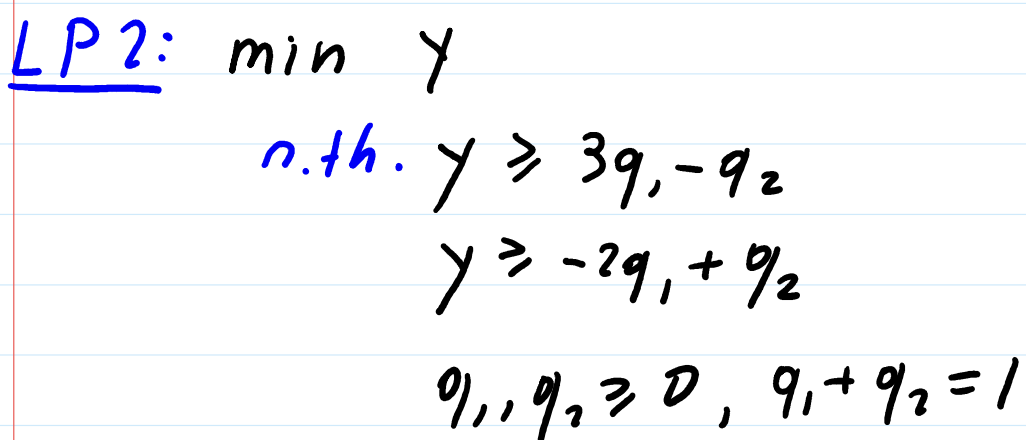 LP2: min y
n.th. y ≥ 3q₁ - q₂
y ≥ -2q₁ + q₂
q₁, q₂ ≥ 0, q₁ + q₂ = 1